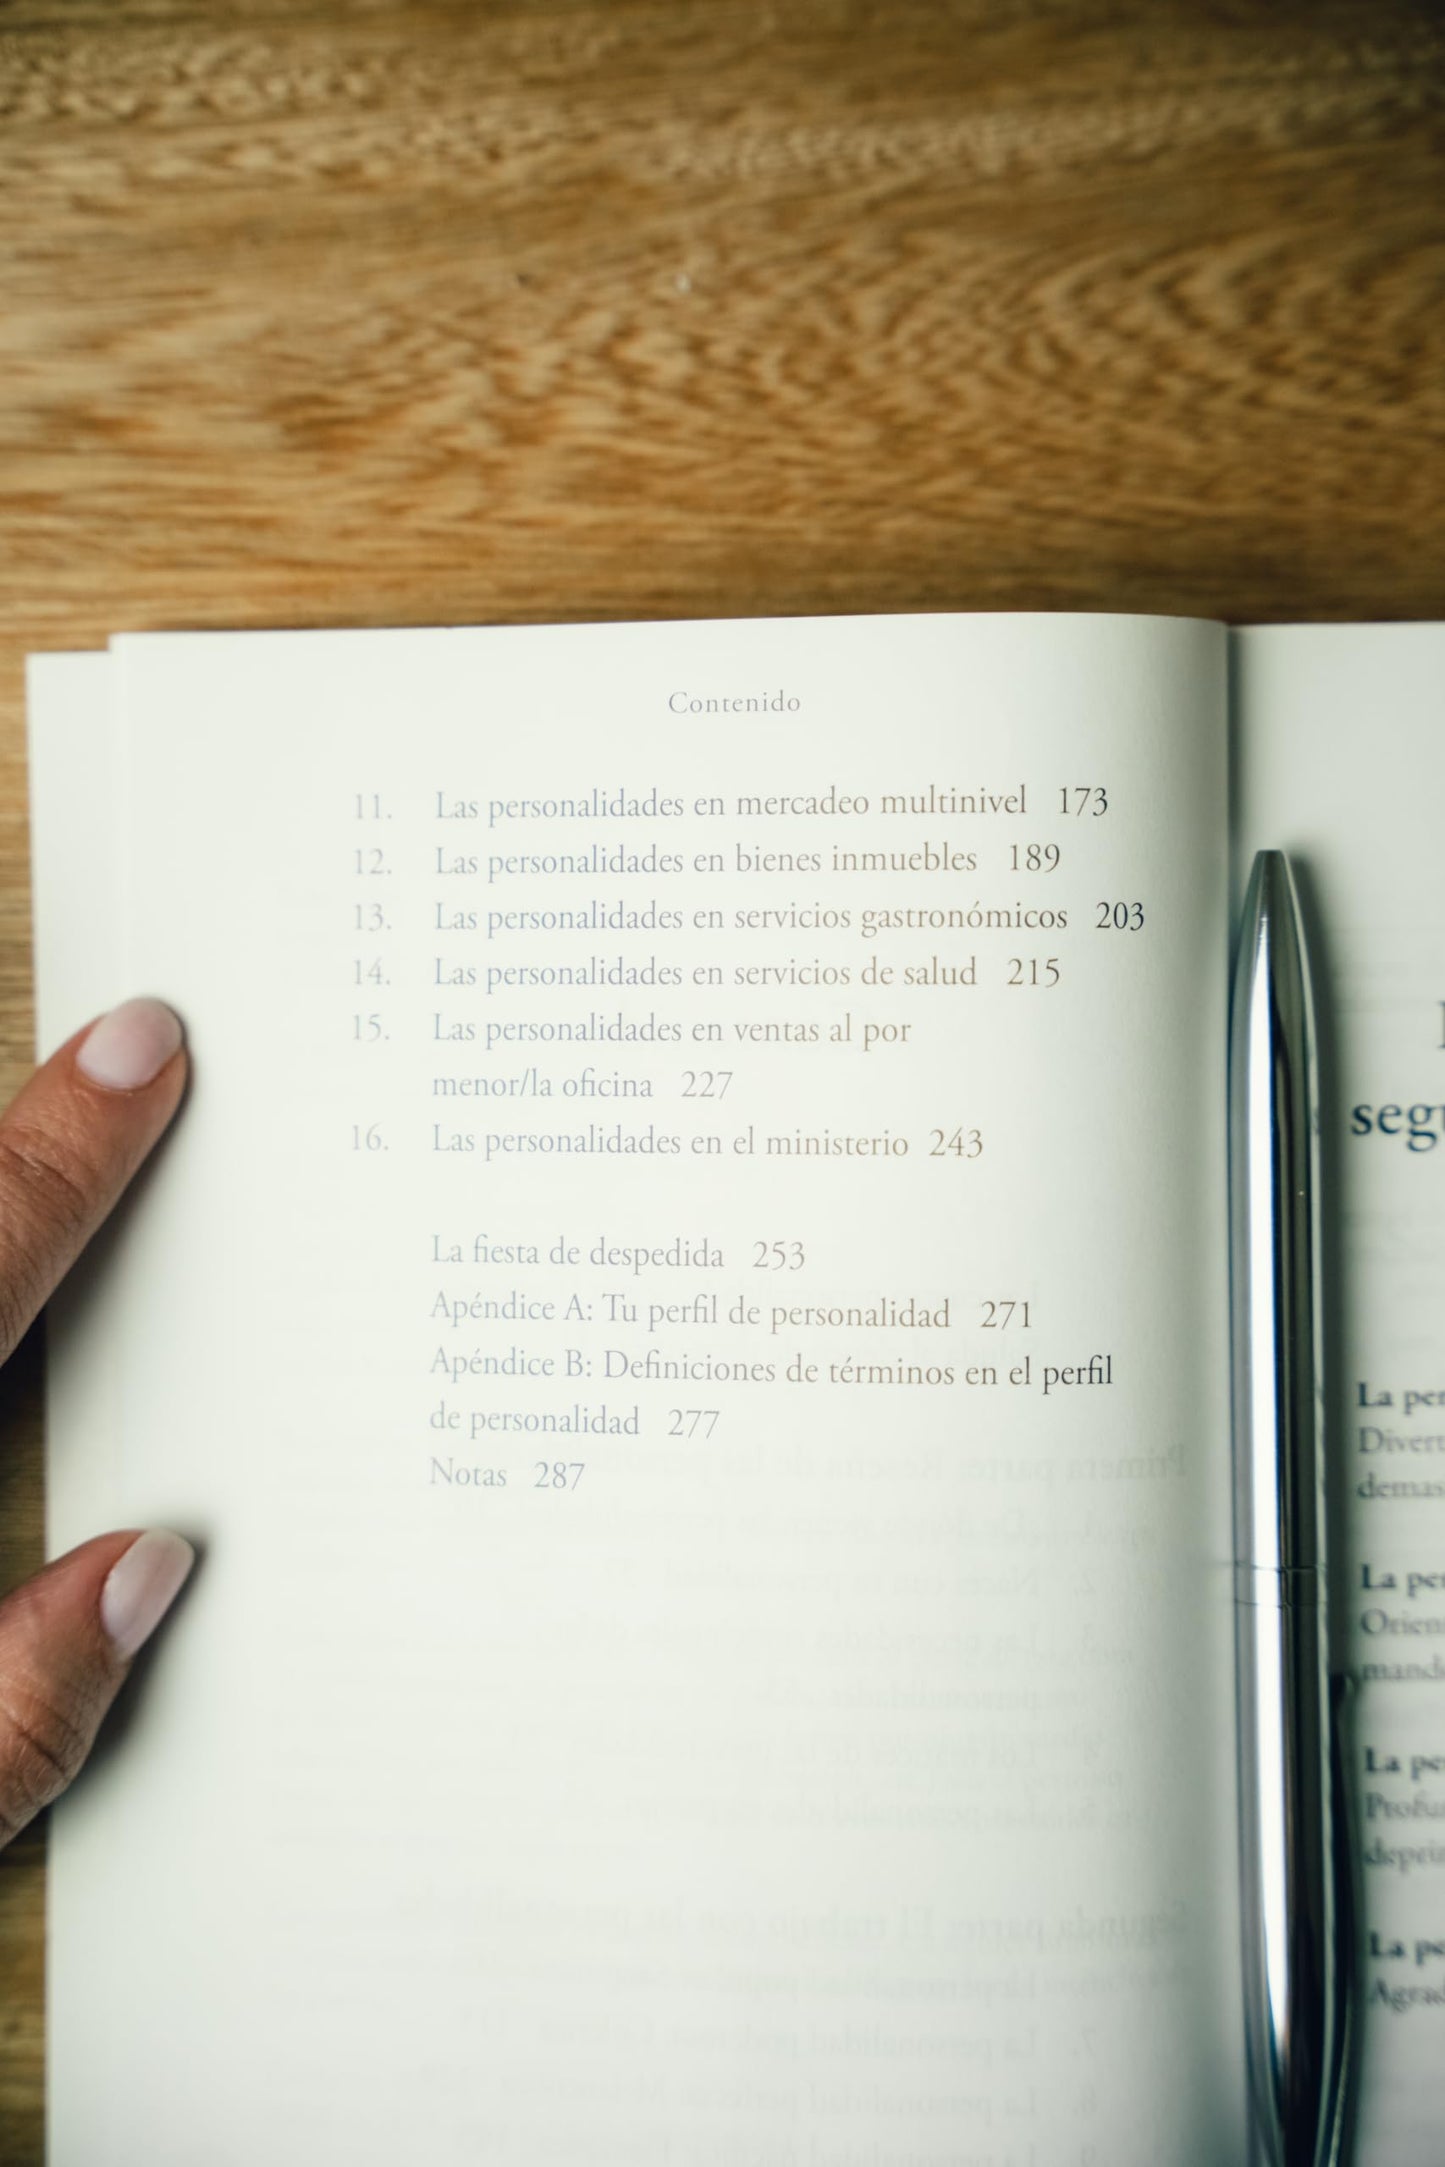 Contenido
11. Las personalidades en mercadeo multinivel 173
12. Las personalidades en bienes inmuebles 189
13. Las personalidades en servicios gastronómicos 203
14. Las personalidades en servicios de salud 215
15. Las personalidades en ventas al por
menor/la oficina 227
16. Las personalidades en el ministerio 243
La fiesta de despedida 253
Apéndice A: Tu perfil de personalidad 271
Apéndice B: Definiciones de términos en el perfil
de personalidad 277
Notas 287
La
La
La
La